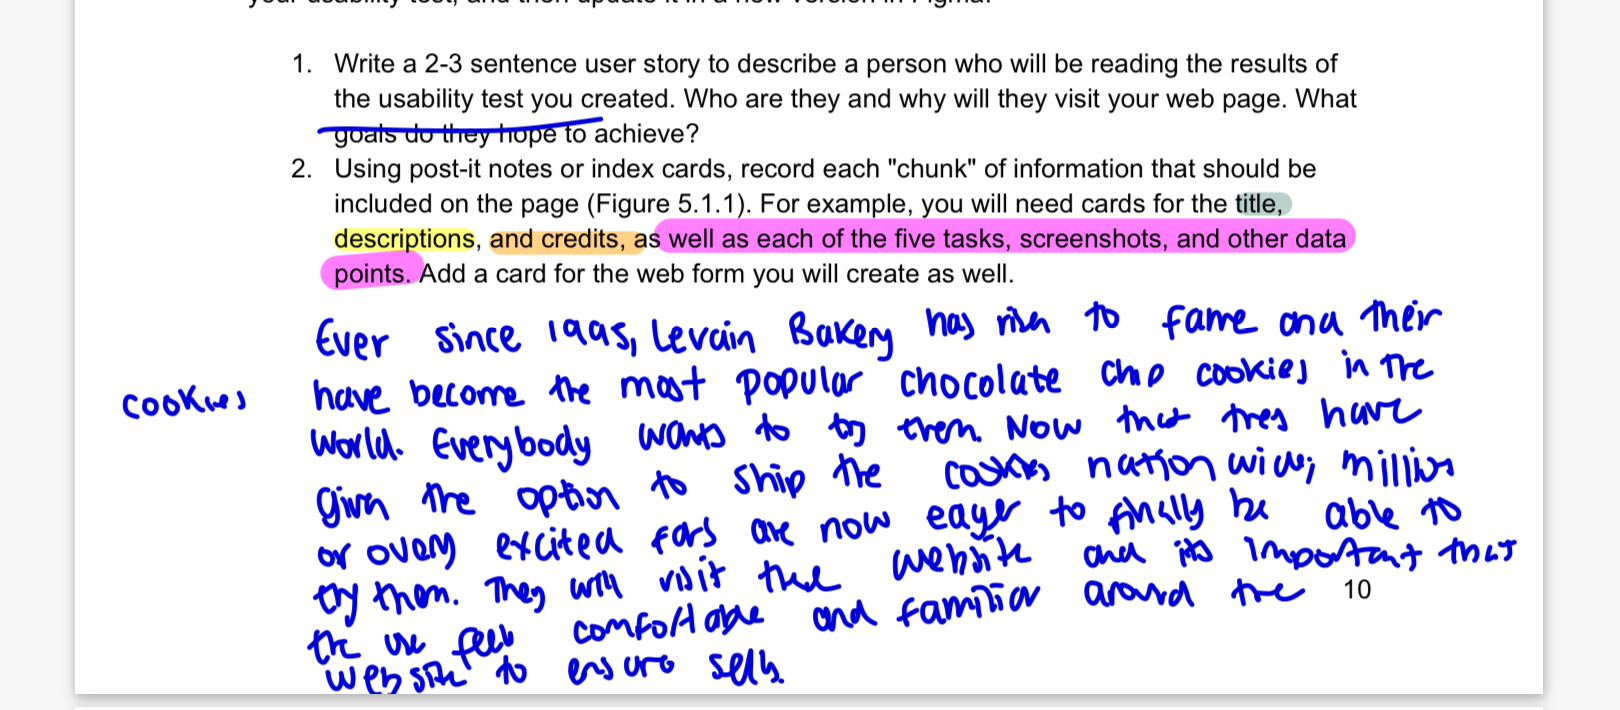 1. Write a 2-3 sentence user story to describe a person who will be reading the results of
the usability test you created. Who are they and why will they visit your web page. What
goals do they hope to achieve?
2. Using post-it notes or index cards, record each "chunk" of information that should be
included on the page (Figure 5.1.1). For example, you will need cards for the title,
descriptions, and credits, as well as each of the five tasks, screenshots, and other data
points. Add a card for the web form you will create as well.
Ever since 1995, Levain Bakery has risen to fame and their
cookies have become the most popular chocolate chip cookies in the
world. Everybody wants to try them. Now that they have
given the option to ship the cookies nation wide, millions
of overly excited fans are now eager to finally be able to
try them. They will visit the website and its important that
10
the use feels comfortable and familiar around the
website to ensure sells.